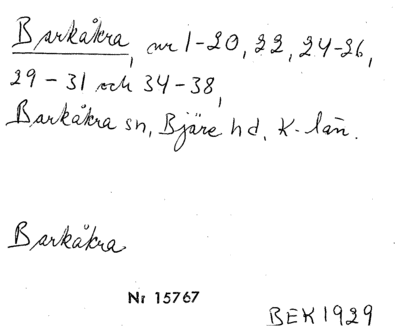 Barkåkra, nr 1-20, 22, 24-26,
29-31 och 34-38,
Barkåkra sn, Bjäre hd. K-län.
Barkåkra
Nr 15767
BEK 1929